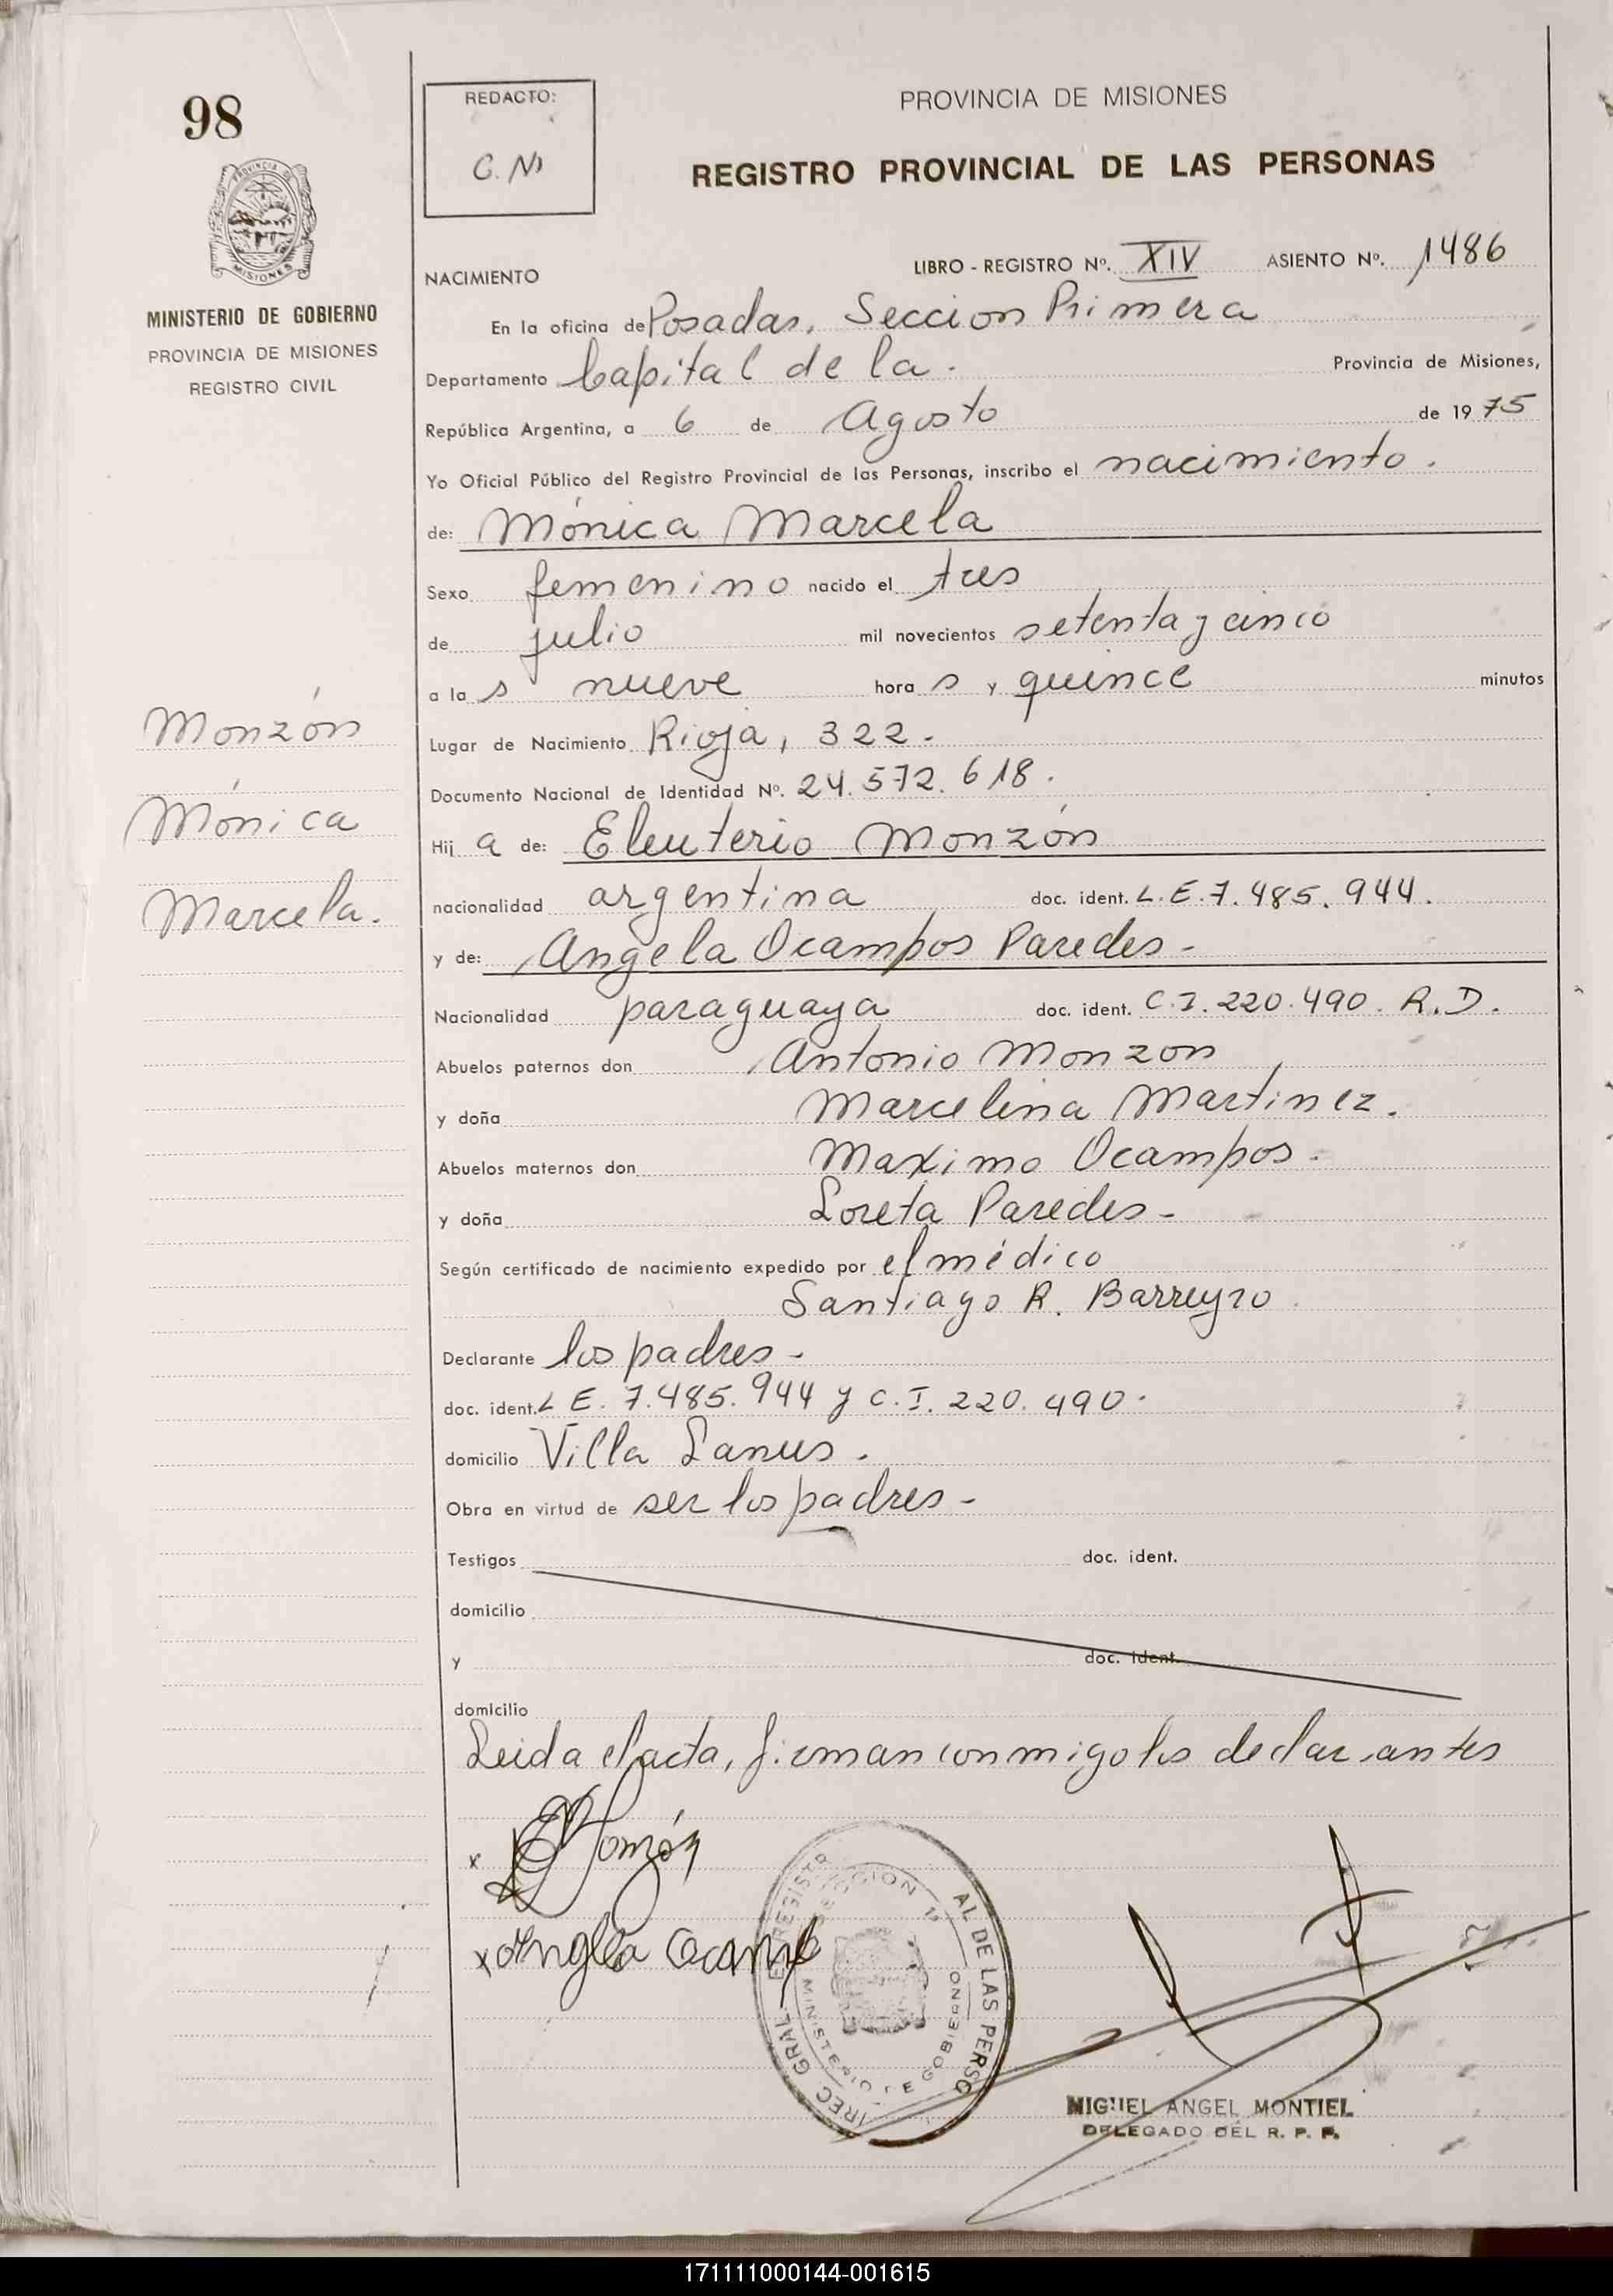 98
REDACTO:
C. N
PROVINCIA DE MISIONES
REGISTRO PROVINCIAL DE LAS PERSONAS
PROVINCIA DE
MISIONES
MINISTERIO DE GOBIERNO
PROVINCIA DE MISIONES
REGISTRO CIVIL
LIBRO - REGISTRO Nº. XIV ASIENTO Nº. 1486
NACIMIENTO
En la oficina de Posadas, Seccion Primera
Departamento Capital de la. Provincia de Misiones,
República Argentina, a 6 de Agosto de 1975
Yo Oficial Público del Registro Provincial de las Personas, inscribo el nacimiento.
de: Mónica Marcela
Sexo femenino nacido el tres
de julio mil novecientos setenta y cinco
a la s nueve hora s y quince minutos
Lugar de Nacimiento Rioja, 322.
Documento Nacional de Identidad Nº. 24.572.618.
Hij a de: Eleuterio Monzón
nacionalidad argentina doc. ident. L.E.7.485.944.
y de: Angela Ocampos Paredes-
Nacionalidad paraguaya doc. ident. C.I.220.490. R.D.
Abuelos paternos don Antonio Monzon
y doña Marcelina Martinez.
Abuelos maternos don Maximo Ocampos.
y doña Loreta Paredes-
Según certificado de nacimiento expedido por el médico
Santiago R. Barreyro
Declarante los padres-
doc. ident. L E. 7.485.944 y C.I. 220.490.
domicilio Villa Lanus.
Obra en virtud de ser los padres-
Testigos doc. ident.
domicilio
y doc. ident.
domicilio
Leida el acta, firman conmigo los declarantes
Monzón
Mónica
Marcela.
x EMonzón
x Angela Ocamp
DIREC GRAL. REGISTR AL DE LAS PERSO
SECCION 1ª
MINISTERIO DE GOBIERNO
MIGUEL ANGEL MONTIEL
DELEGADO DEL R. P. P.
171111000144-001615